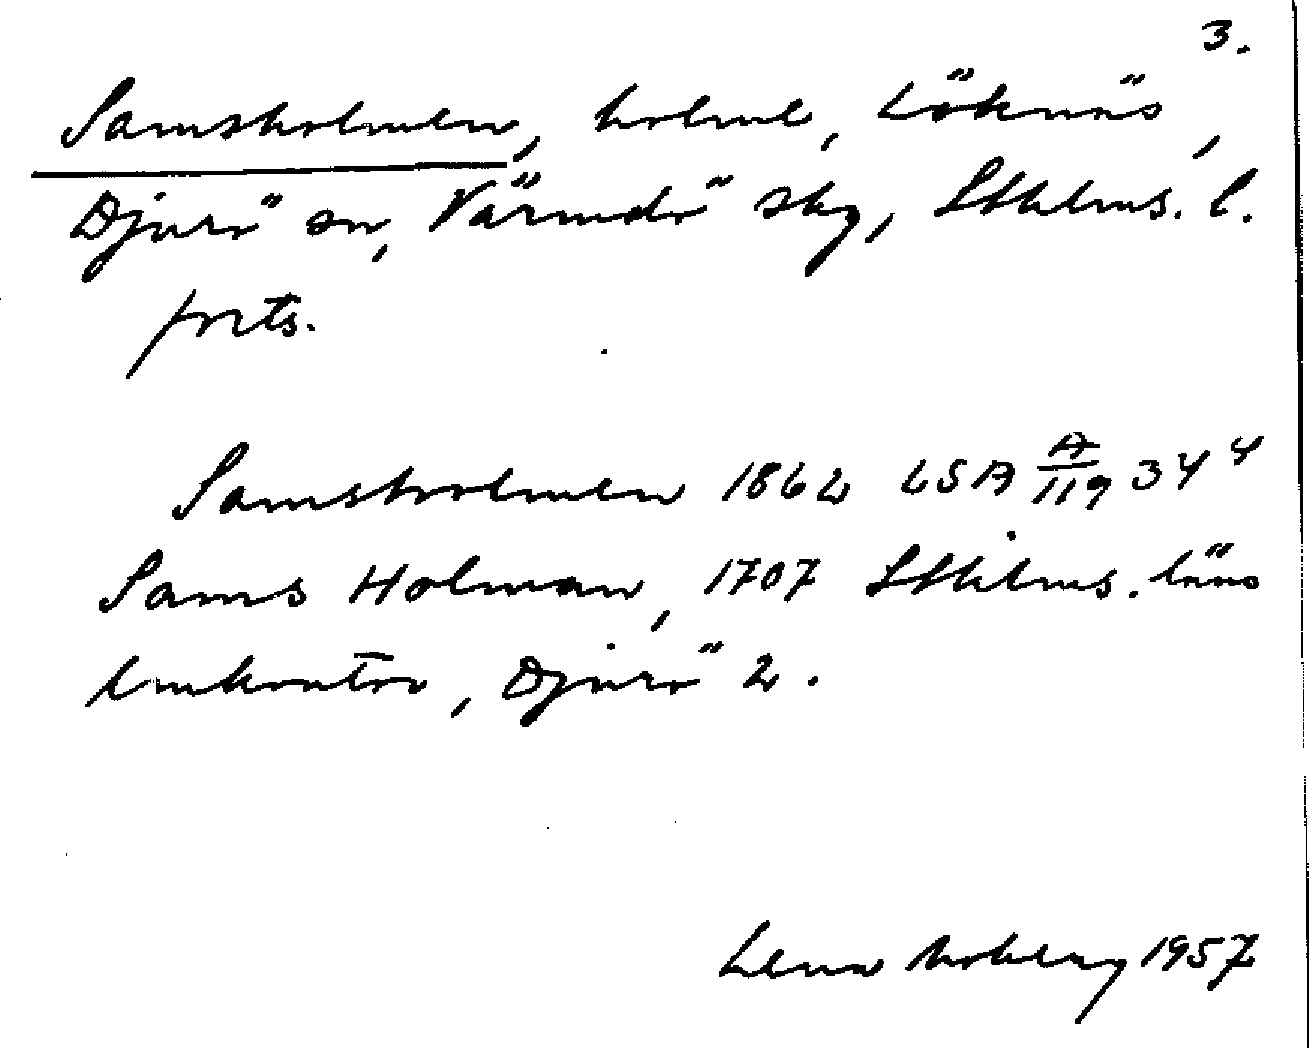 3.
Samsholmen, holme, Löknäs,
Djurö sn, Värmdö skg, Sthlms. l.
forts.
Samsholmen 1862 LSA A/119 34 4
Sams Holman, 1707 Sthlms. läns
lmkontor, Djurö 2.
Lena Moberg 1957